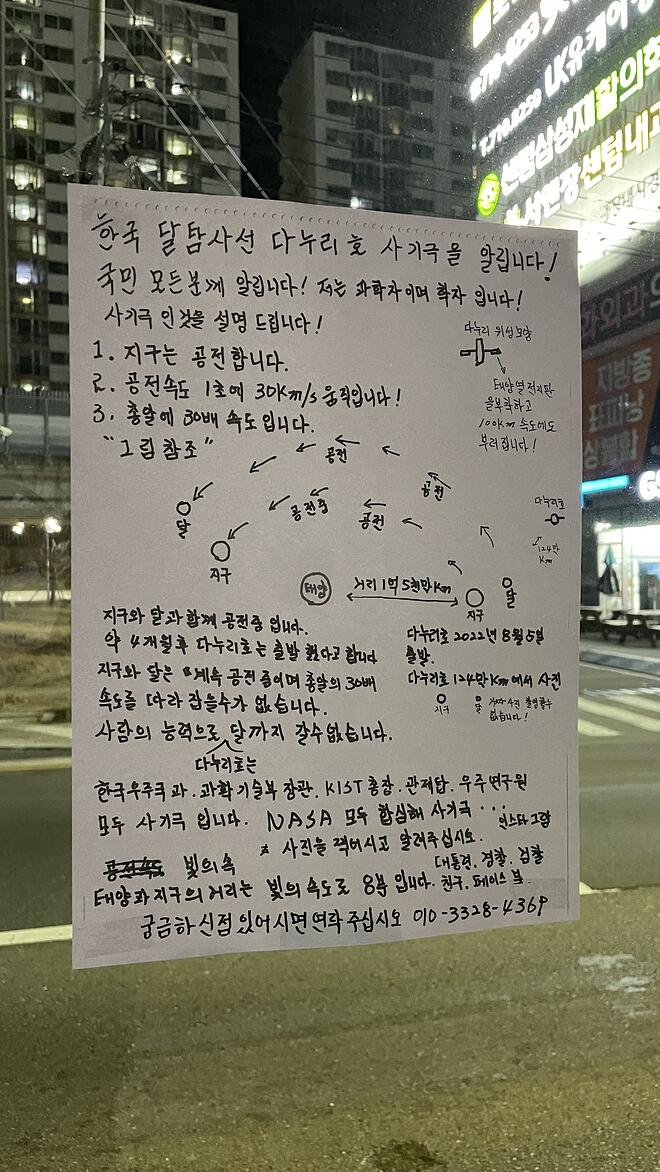 한국 달탐사선 다누리호 사기극을 알립니다!
국민 모든분께 알립니다! 저는 과학자이며 학자 입니다!
사기극 인것을 설명 드립니다!
1. 지구는 공전합니다.
2. 공전속도 1초에 30Km/s 움직입니다!
3. 총알에 30배 속도입니다.
"그림참조"
다누리 위성모양
태양열전지판
을부착하고
100Km 속도에도
부러집니다!
공전
공전
공전중
공전
달
지구
태양
거리 1억 5천만 Km
지구
달
다누리호
124만
Km
지구와 달과 함께 공전중 입니다.
약 4개월후 다누리호는 출발 했다고 합니다
지구와 달은 계속 공전 중이며 총알의 30배
속도를 따라 잡을수가 없습니다.
사람의 능력으로 달까지 갈수없습니다.
다누리호는
다누리호 2022년 8월 5일
출발.
다누리호 124만 Km 에서 사진
지구
달
사진 촬영할수
없습니다!
한국우주국과. 과학기술부 장관. KIST 총장. 관제탑. 우주연구원
모두 사기극 입니다. NASA 모두 합심해 사기극 ...
* 사진을 찍어시고 알려주십시오.
인스타그람
대통령. 경찰. 검찰
친구. 페이스 북.
빛의속
태양과 지구의 거리는 빛의 속도로 8분 입니다.
궁금하신점 있어시면 연락 주십시오 010-3328-4369
T.710-0250
LK유케어
센텀삼성재활의학
센텀내과
지방종
표피낭